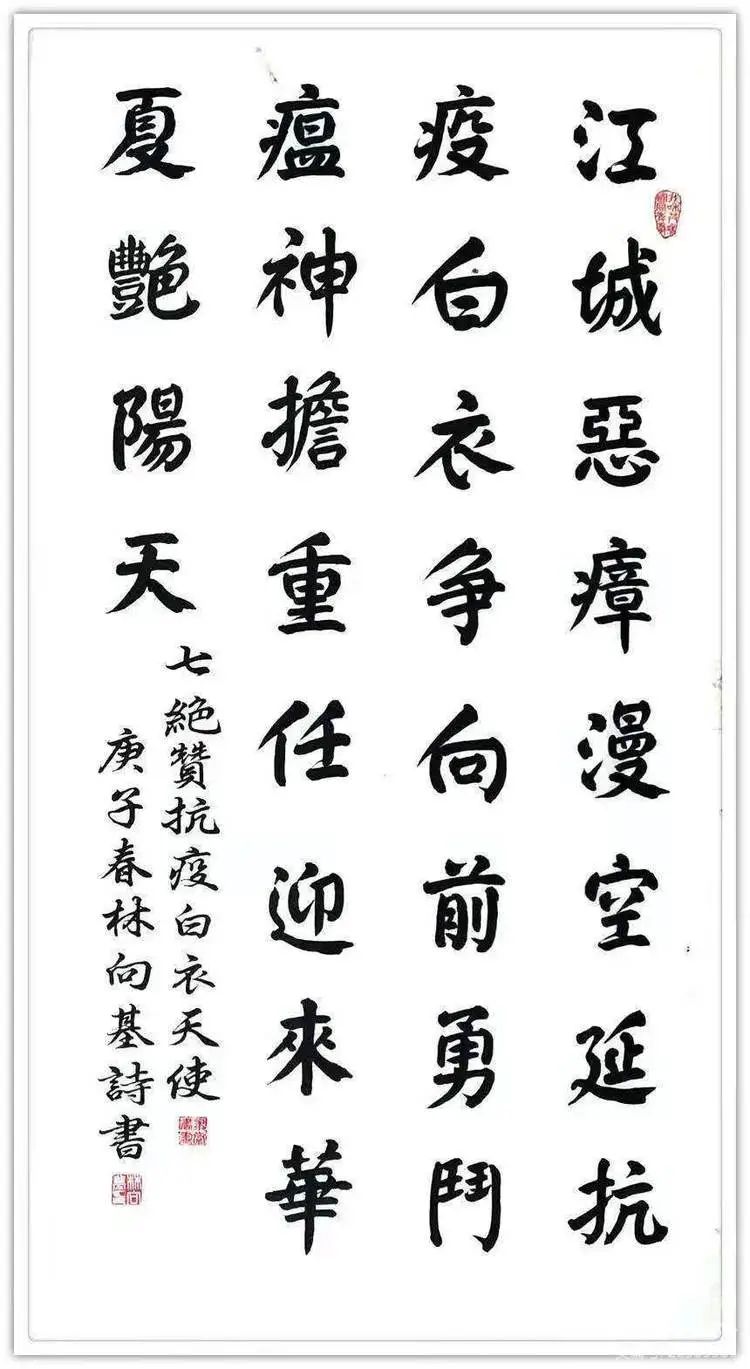 江城惡瘴漫空延抗
疫白衣争向前勇鬥
瘟神擔重任迎來華
夏艷陽天
七絕贊抗疫白衣天使
庚子春林向基詩書